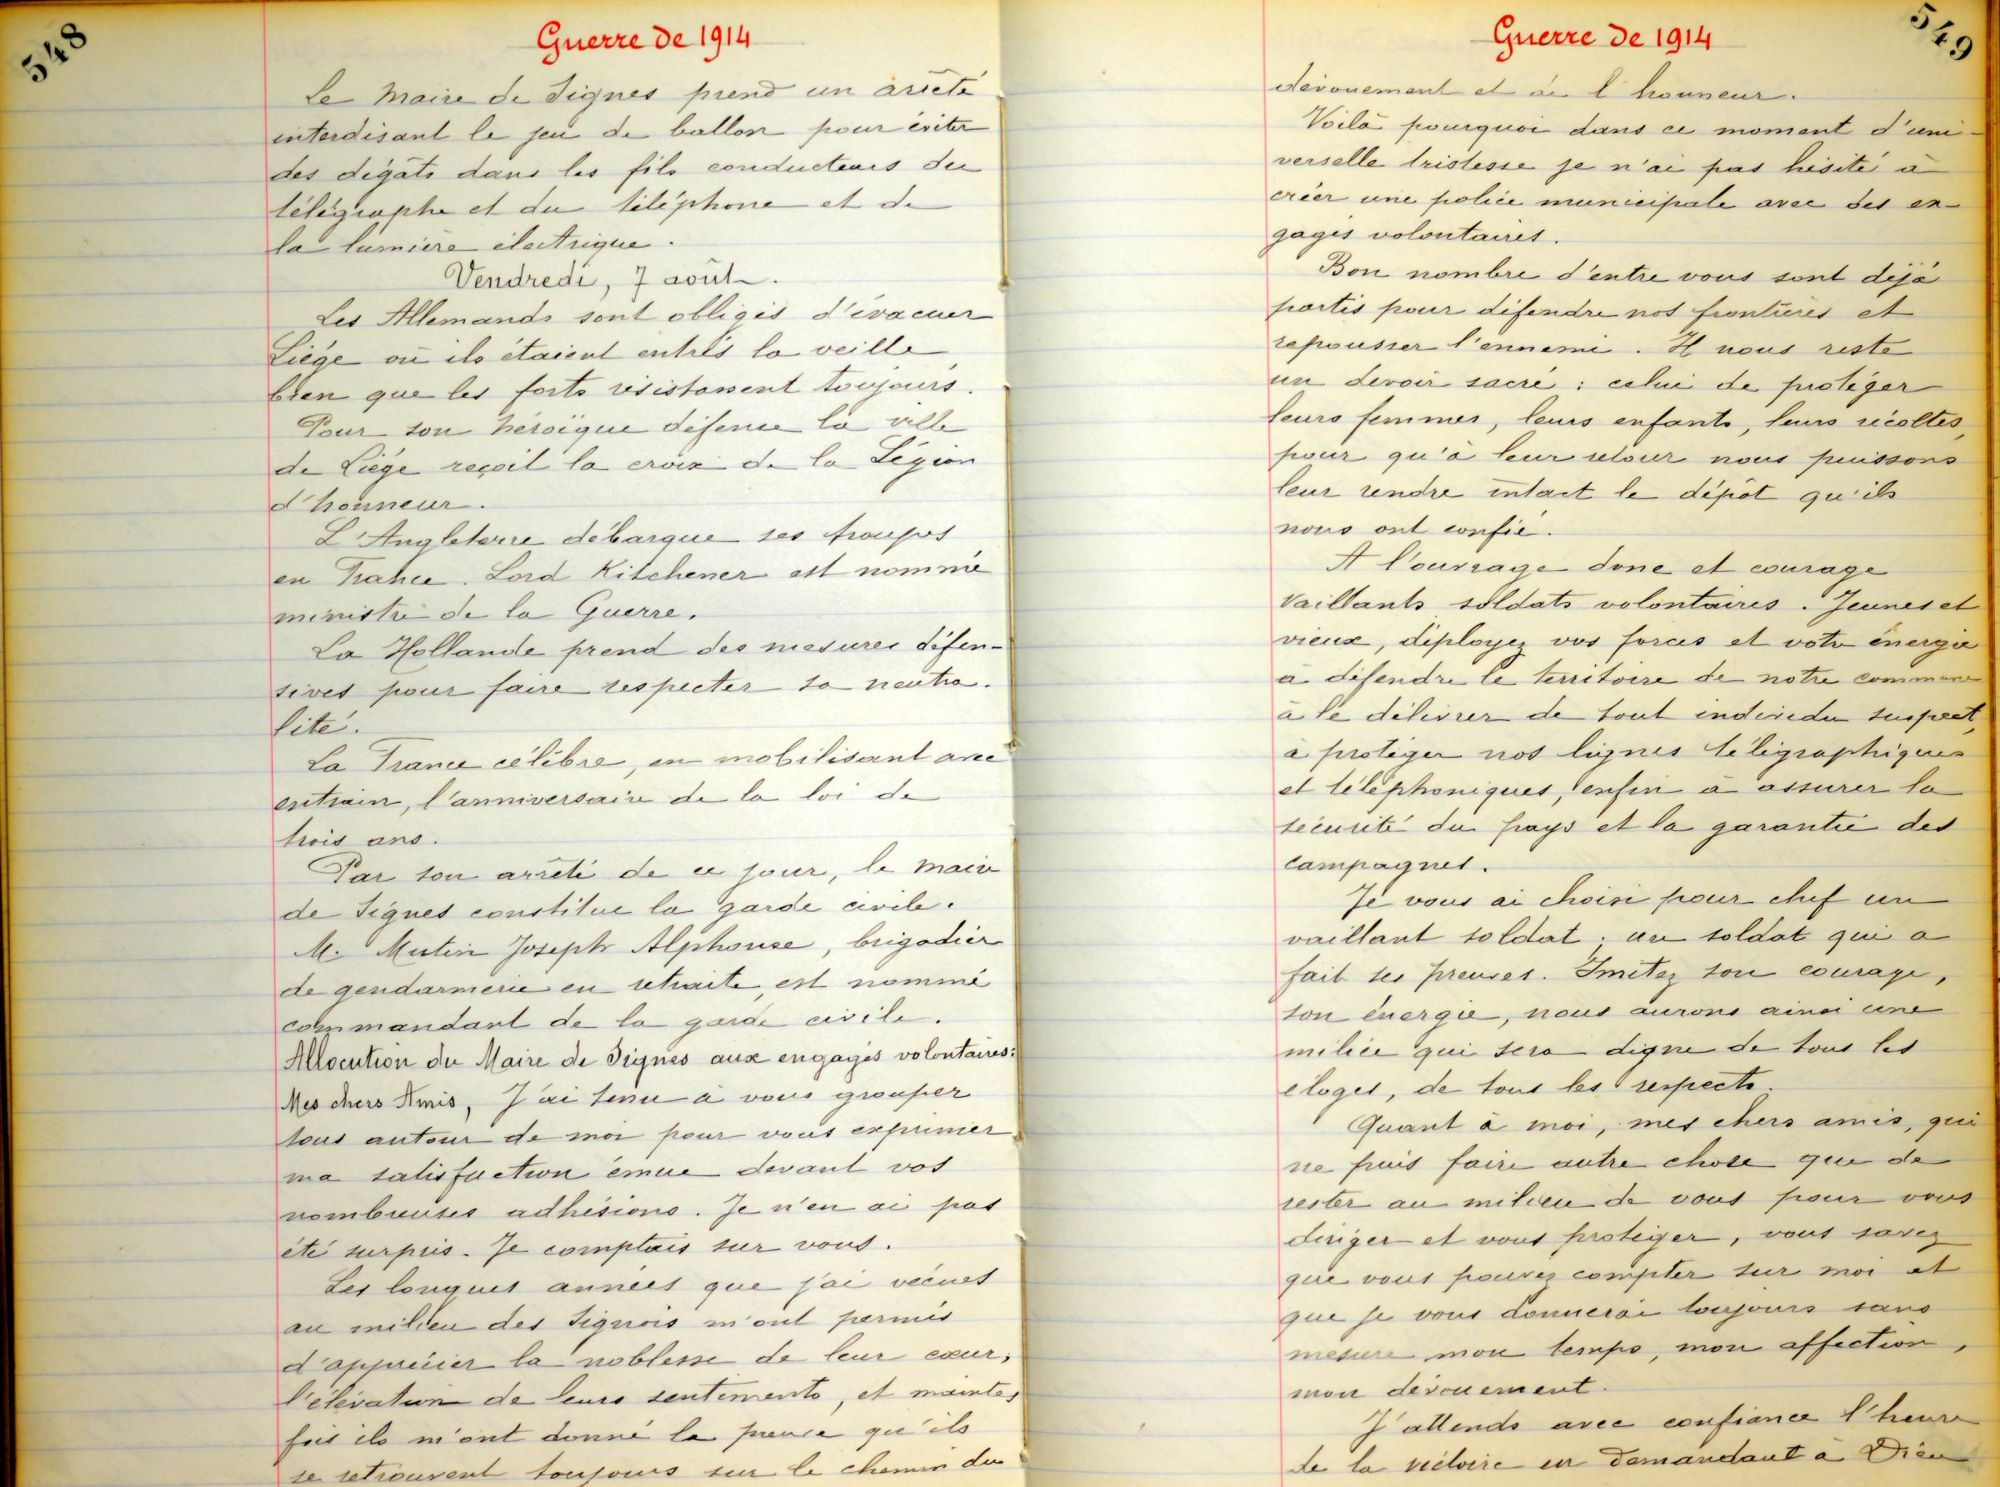 548
Guerre de 1914
Le Maire de Signes prend un arrêté
interdisant le jeu de ballon pour éviter
des dégâts dans les fils conducteurs du
télégraphe et du téléphone et de
la lumière électrique.
Vendredi, 7 août.
Les Allemands sont obligés d'évacuer
Liège où ils étaient entrés la veille
bien que les forts résistassent toujours.
Pour son héroïque défense la ville
de Liège reçoit la croix de la Légion
d'honneur.
L'Angleterre débarque ses troupes
en France. Lord Kitchener est nommé
ministre de la Guerre.
La Hollande prend des mesures défen-
sives pour faire respecter sa neutra-
lité.
La France célèbre, en mobilisant avec
entrain, l'anniversaire de la loi de
trois ans.
Par son arrêté de ce jour, le maire
de Signes constitue la garde civile.
M. Mutin Joseph Alphonse, brigadier
de gendarmerie en retraite, est nommé
commandant de la garde civile.
Allocution du Maire de Signes aux engagés volontaires:
Mes chers Amis, J'ai tenu à vous grouper
tous autour de moi pour vous exprimer
ma satisfaction émue devant vos
nombreuses adhésions. Je n'en ai pas
été surpris. Je comptais sur vous.
Les longues années que j'ai vécues
au milieu des Signois m'ont permis
d'apprécier la noblesse de leur cœur,
l'élévation de leurs sentiments, et maintes
fois ils m'ont donné la preuve qu'ils
se retrouvent toujours sur le chemin du
549
Guerre de 1914
dévouement et de l'honneur.
Voilà pourquoi dans ce moment d'uni-
verselle tristesse je n'ai pas hésité à
créer une police municipale avec des en-
gagés volontaires.
Bon nombre d'entre vous sont déjà
partis pour défendre nos frontières et
repousser l'ennemi. Il nous reste
un devoir sacré: celui de protéger
leurs femmes, leurs enfants, leurs récoltes,
pour qu'à leur retour nous puissons
leur rendre intact le dépôt qu'ils
nous ont confié.
A l'ouvrage donc et courage
vaillants soldats volontaires. Jeunes et
vieux, déployez vos forces et votre énergie
à défendre le territoire de notre commune
à le délivrer de tout individu suspect,
à protéger nos lignes télégraphiques
et téléphoniques, enfin à assurer la
sécurité du pays et la garantie des
campagnes.
Je vous ai choisi pour chef un
vaillant soldat; un soldat qui a
fait ses preuves. Imitez son courage,
son énergie, nous aurons ainsi une
milice qui sera digne de tous les
éloges, de tous les respects.
Quant à moi, mes chers amis, qui
ne puis faire autre chose que de
rester au milieu de vous pour vous
diriger et vous protéger, vous savez
que vous pouvez compter sur moi et
que je vous donnerai toujours sans
mesure mon temps, mon affection,
mon dévouement.
J'attends avec confiance l'heure
de la victoire en demandant à Dieu